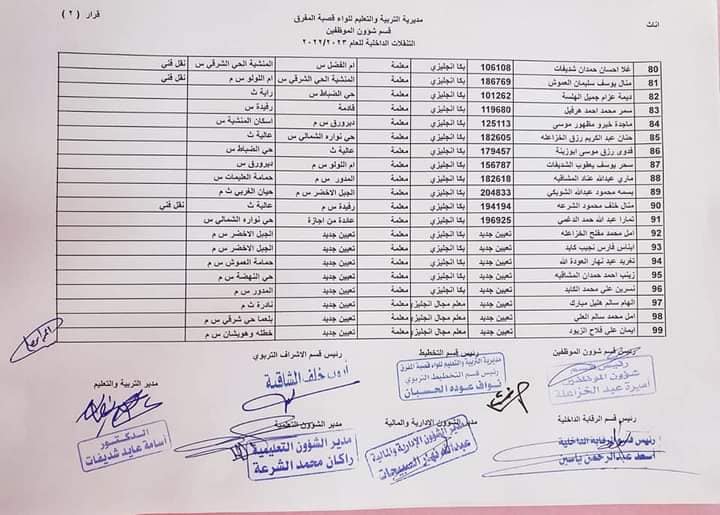 اناث
قرار ( ٢ )
مديرية التربية والتعليم للواء قصبة المفرق
قسم شؤون الموظفين
التنقلات الداخلية للعام ٢٠٢٢/٢٠٢٣
80 غلا احسان حمدان شديفات 106108 بكا انجليزي معلمة ام الفضل س المنشية الحي الشرقي س نقل فني
81 منال يوسف سليمان العموش 186769 بكا انجليزي معلمة المنشية الحي الشرقي س ام اللولو س م نقل فني
82 ديمة عزام جميل الهلسة 101262 بكا انجليزي معلمة حي الضباط س رابة ث
83 سمر محمد احمد هرفيل 119680 بكا انجليزي معلمة قادمة رفيدة س
84 ماجدة خيرو مظهور موسى 125113 بكا انجليزي معلمة ديرورق س م اسكان المنشية س
85 حنان عبد الكريم رزق الخزاعله 182605 بكا انجليزي معلمة حي نواره الشمالي س عالية ث
86 فدوى رزق موسى ابوزينة 179457 بكا انجليزي معلمة عالية ث حي الضباط س
87 سحر يوسف يعقوب الشديفات 156787 بكا انجليزي معلمة ام اللولو س م ديرورق س
88 ماري عبدالله عناد المشاقبه 182618 بكا انجليزي معلمة المدور س م حمامة العليمات س
89 بسمه محمود عبدالله الشويكي 204833 بكا انجليزي معلمة الجبل الاخضر س م حيان الغربي ث م
90 منال خلف محمود الشرعه 194194 بكا انجليزي معلمة رفيدة س م عالية ث نقل فني
91 تمارا عبد الله حمد الدغمي 196925 بكا انجليزي معلمة عائدة من اجازة حي نواره الشمالي س
92 امل محمد مفلح الخزاعله تعيين جديد بكا انجليزي معلمة تعيين جديد الجبل الاخضر س م
93 ايناس فارس نجيب كايد تعيين جديد بكا انجليزي معلمة تعيين جديد الجبل الاخضر س م
94 تغريد عيد نهار العودة الله تعيين جديد بكا انجليزي معلمة تعيين جديد حمامة العموش س م
95 زينب احمد حمدان المشاقبه تعيين جديد بكا انجليزي معلمة تعيين جديد حي النهضة س م
96 نسرين علي محمد الكايد تعيين جديد بكا انجليزي معلمة تعيين جديد المدور س م
97 الهام سالم هليل مبارك تعيين جديد معلم مجال انجليز معلمة تعيين جديد نادرة ث م
98 امل محمد سالم العلي تعيين جديد معلم مجال انجليز معلمة تعيين جديد بلعما حي شرقي س م
99 ايمان علي فلاح الزيود تعيين جديد معلم مجال انجليز معلمة تعيين جديد خطله وهويشان س م
رئيس قسم شؤون الموظفين
رئيس قسم التخطيط
رئيس قسم الاشراف التربوي
مدير التربية والتعليم
رئيس قسم
شؤون الموظفين
أميرة عيد الخزاعلة
مديرية التربية والتعليم للواء قصبة المفرق
رئيس قسم التخطيط التربوي
نواف عوده الحسبان
أيمن خلف الشاقبة
الدكتور
أسامة عايد شديفات
رئيس قسم الرقابة الداخلية
مدير الشؤون الإدارية والمالية
مدير الشؤون التعليمية
رئيس قسم الرقابة الداخلية
اسعد عبدالرحمن ياسين
مدير الشؤون الإدارية والمالية
مدير الشؤون التعليمية
راكان محمد الشرعة